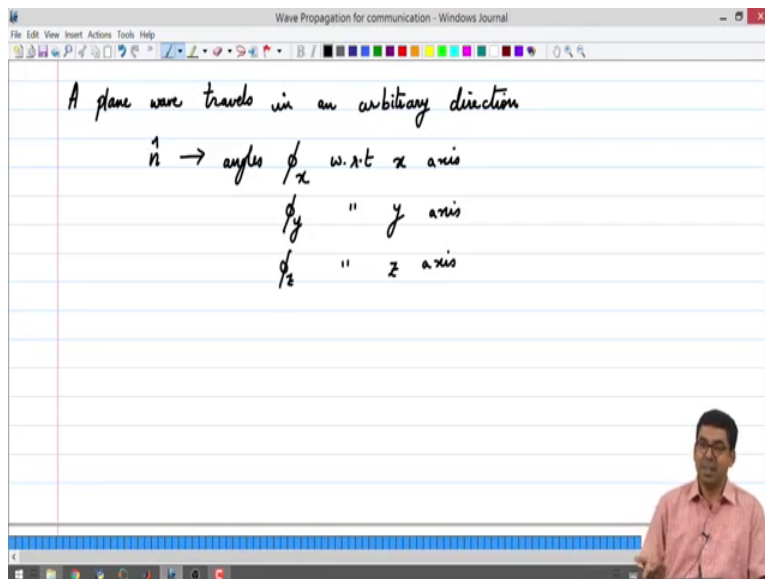 Wave Propagation for communication - Windows Journal
File Edit View Insert Actions Tools Help
A plane wave travels in an arbitrary direction
n̂ → angles ϕx w.r.t x axis
ϕy " y axis
ϕz " z axis